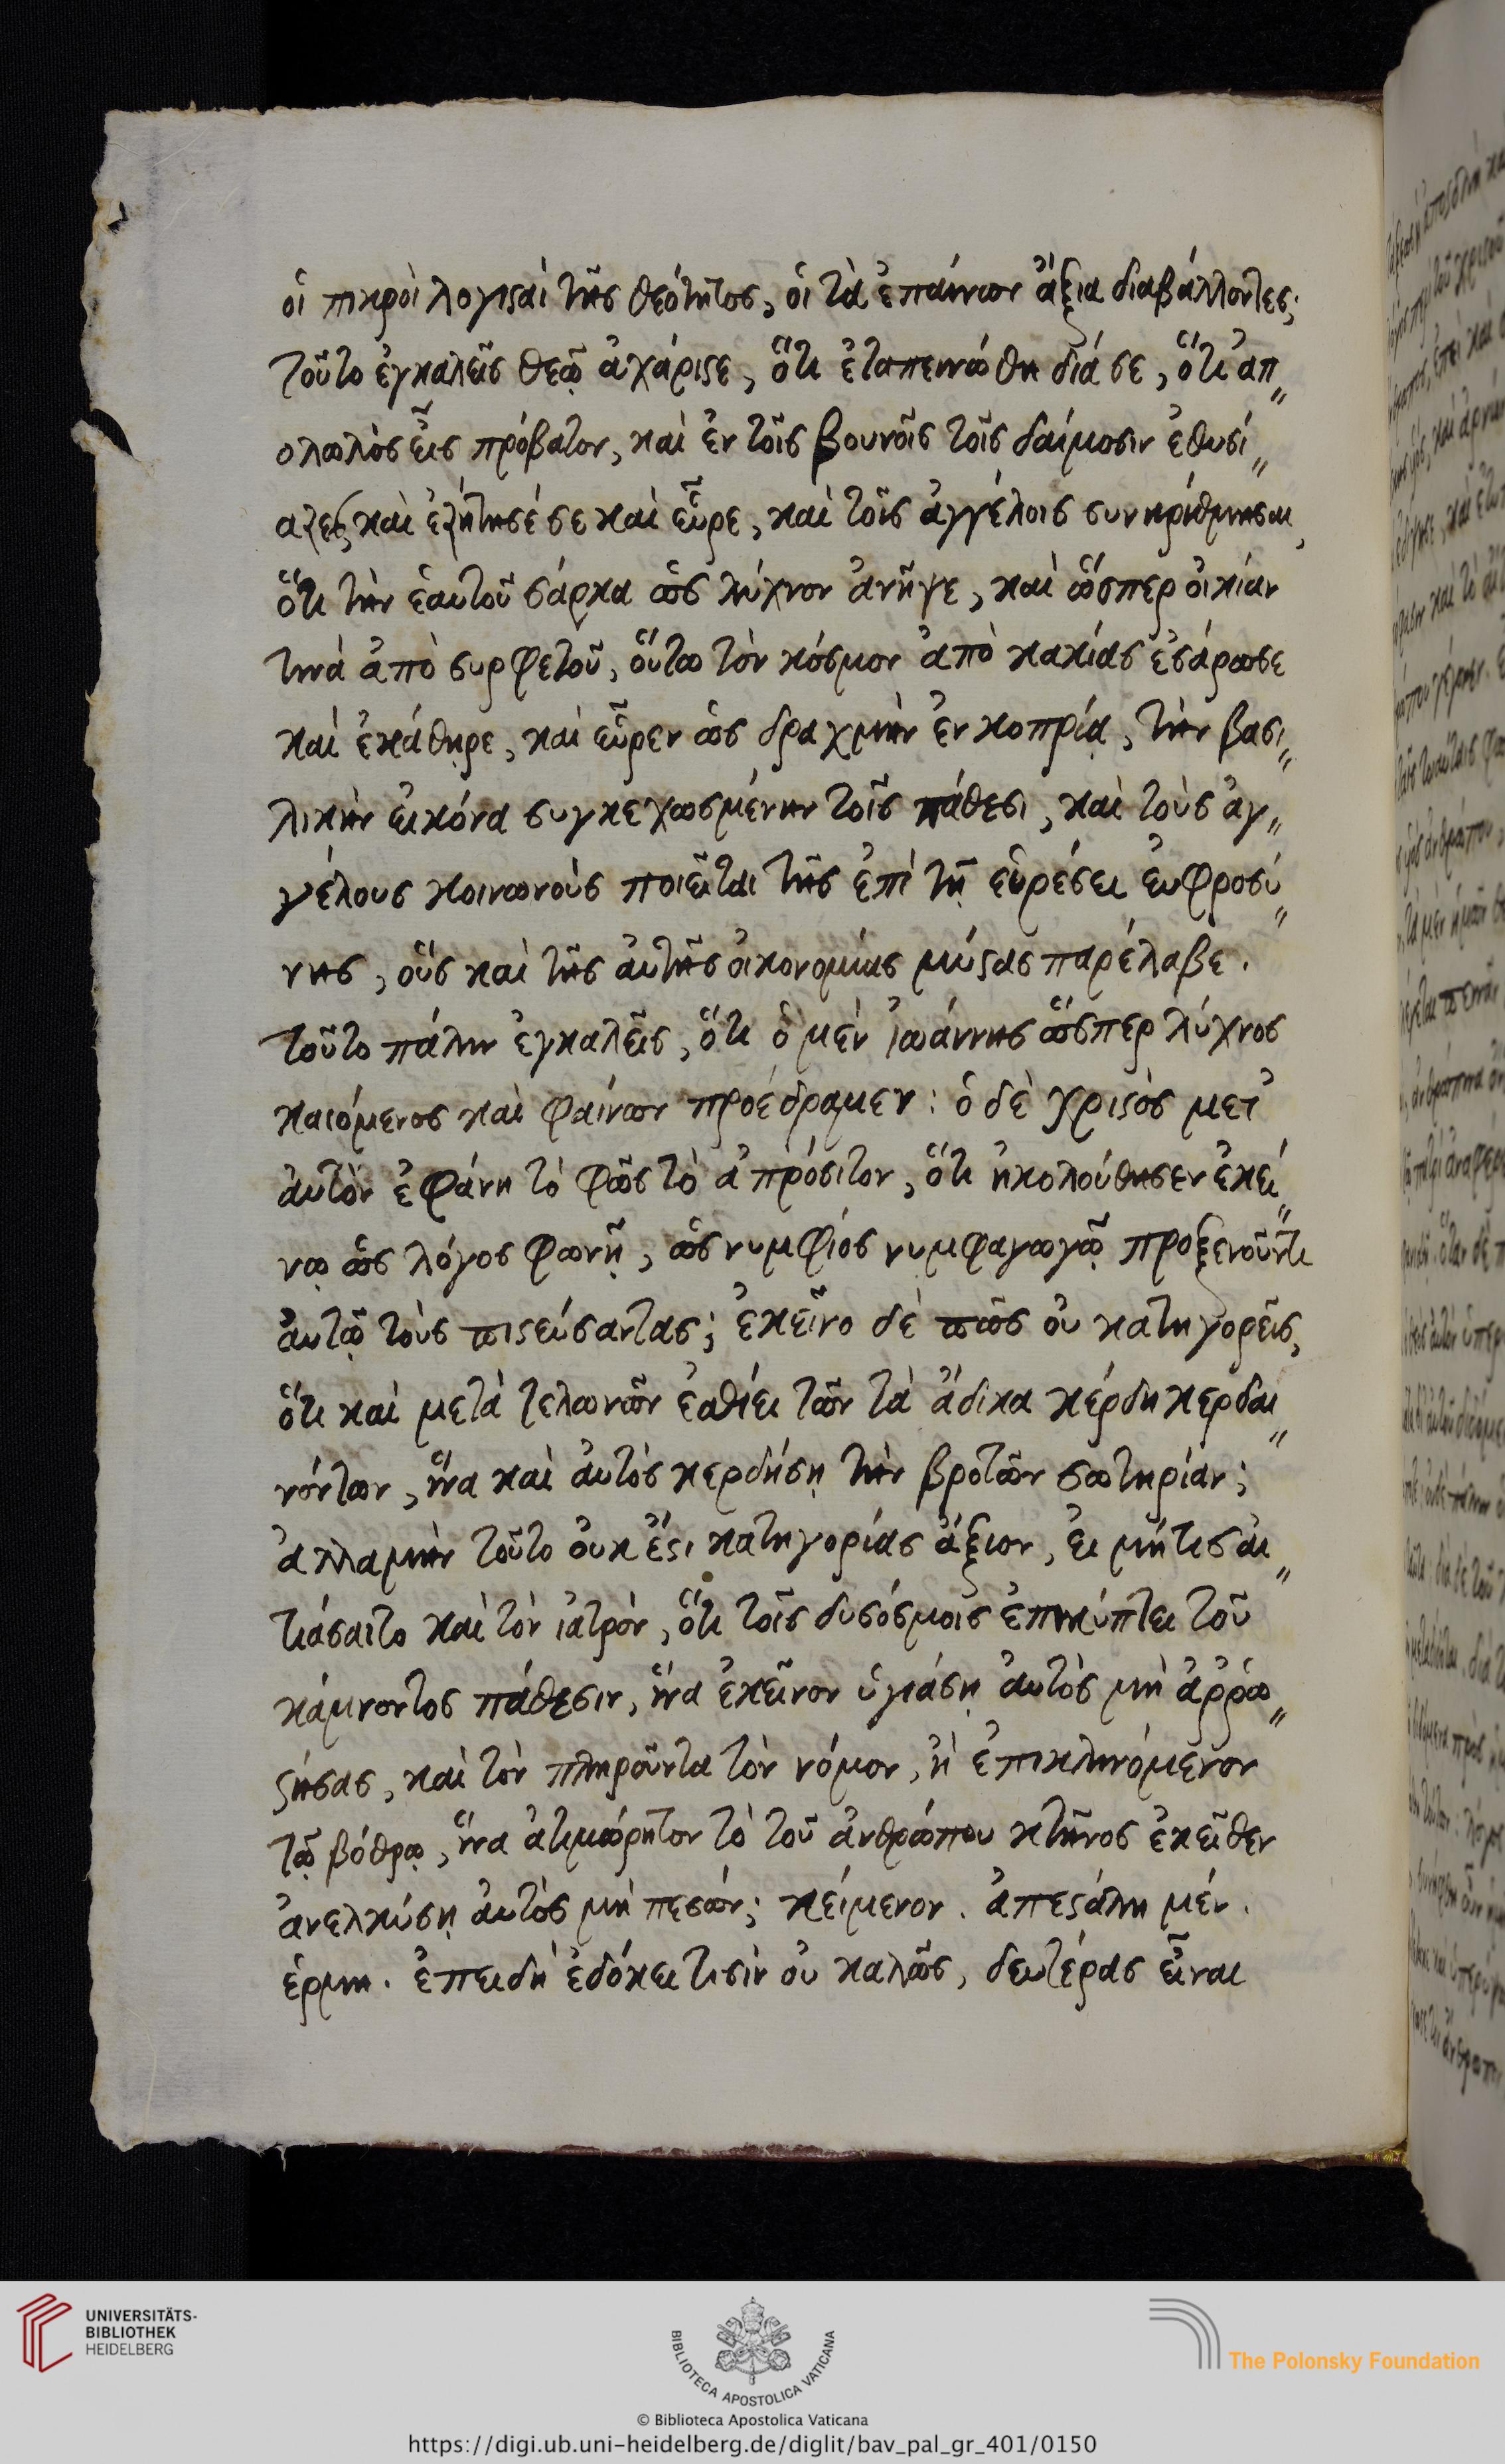 οἱ πικροὶ λογισταὶ τῆς θεότητος, οἱ τὰ ἐπαίνων ἄξια διαβάλλοντες;
τοῦτο ἐγκαλεῖς θεῷ ἀχάριστε, ὅτι ἐταπεινώθη διά σε, ὅτι ἀπ〃
ολωλὸς εἶς πρόβατον, καὶ ἐν τοῖς βουνοῖς τοῖς δαίμοσιν ἐθυσί〃
αζες, καὶ ἐζήτησέ σε καὶ εὗρε, καὶ τοῖς ἀγγέλοις συνηρίθμησαι,
ὅτι τὴν ἑαυτοῦ σάρκα ὡς λύχνον ἀνῆγε, καὶ ὥσπερ οἰκίαν
τινὰ ἀπὸ συρφετοῦ, οὕτω τὸν κόσμον ἀπὸ κακίας ἐσάρωσε
καὶ ἐκάθηρε, καὶ εὗρεν ὡς δραχμὴν ἐν κοπρίᾳ, τὴν βασι〃
λικὴν εἰκόνα συγκεχωσμένην τοῖς πάθεσι, καὶ τοὺς ἀγ〃
γέλους κοινωνοὺς ποιεῖται τῆς ἐπὶ τῇ εὑρέσει εὐφροσύ〃
νης, οὓς καὶ τῆς αὐτῆς οἰκονομίας μύστας παρέλαβε.
τοῦτο πάλιν ἐγκαλεῖς, ὅτι ὁ μὲν ἰωάννης ὥσπερ λύχνος
καιόμενος καὶ φαίνων προέδραμεν: ὁ δὲ χριστὸς μετ᾽
αὐτὸν ἐφάνη τὸ φῶς τὸ ἀπρόσιτον, ὅτι ἠκολούθησεν ἐκεί〃
νῳ ὡς λόγος φωνῇ, ὡς νυμφίος νυμφαγωγῷ προξενοῦντι
αὐτῷ τοὺς πιστεύσαντας; ἐκεῖνο δὲ πῶς οὐ κατηγορεῖς,
ὅτι καὶ μετὰ τελωνῶν ἐσθίει τῶν τὰ ἄδικα κέρδη κερδαι〃
νόντων, ἵνα καὶ αὐτὸς κερδήσῃ τὴν βροτῶν σωτηρίαν;
ἀλλαμὴν τοῦτο οὐκ ἔστι κατηγορίας ἄξιον, εἰ μήτις αἰ〃
τιάσαιτο καὶ τὸν ἰατρὸν, ὅτι τοῖς δυσόσμοις ἐπικύπτει τοῦ
κάμνοντος πάθεσιν, ἵνα ἐκεῖνον ὑγιάσῃ αὐτὸς μὴ ἀῤῥω〃
στήσας, καὶ τὸν πληροῦντα τὸν νόμον, ἢ ἐπικλινόμενον
τῷ βόθρῳ, ἵνα ἀτιμώρητον τὸ τοῦ ἀνθρώπου κτῆνος ἐκεῖθεν
ἀνελκύσῃ αὐτὸς μὴ πεσών; κείμενον. ἀπεστάλη μέν.
ἑρμη. ἐπειδὴ ἐδόκει τισὶν οὐ καλῶς, δευτέρας εἶναι
UNIVERSITÄTS-
BIBLIOTHEK
HEIDELBERG
BIBLIOTECA APOSTOLICA VATICANA
The Polonsky Foundation
© Biblioteca Apostolica Vaticana
https://digi.ub.uni-heidelberg.de/diglit/bav_pal_gr_401/0150